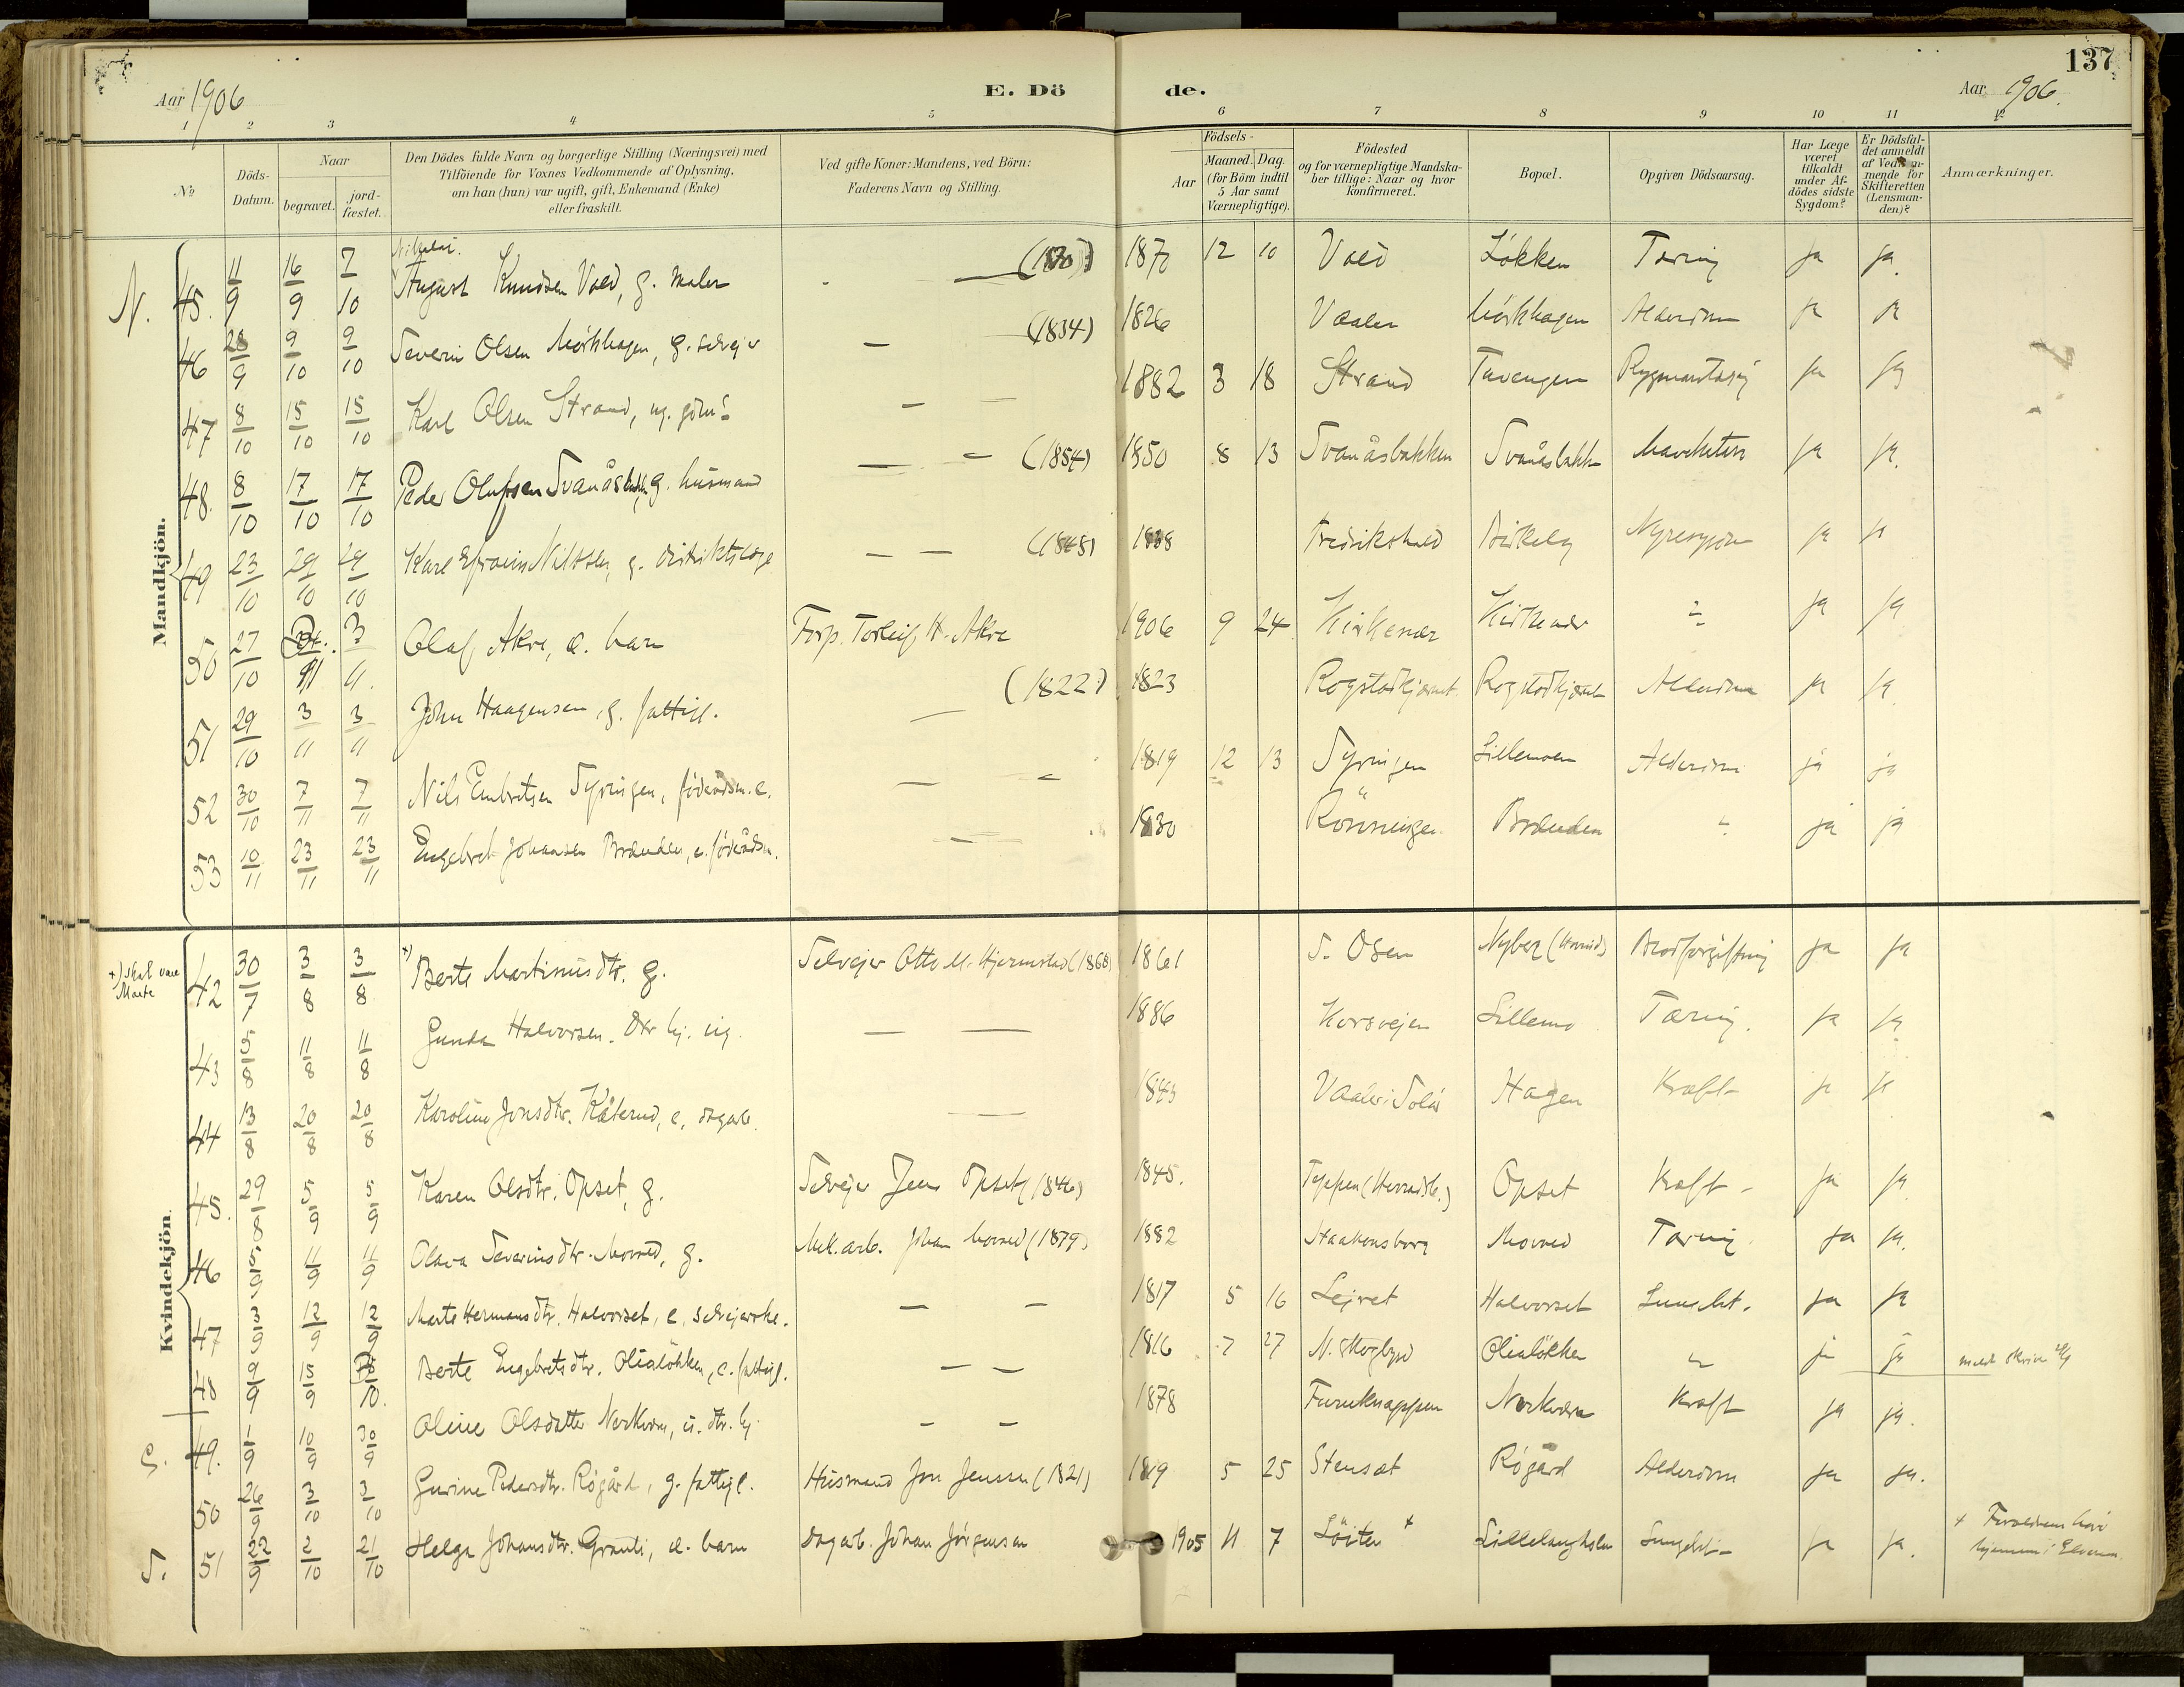 137
Aar 1906
E. Döde.
Aar 1906.
1 2 3 4 5 6 7 8 9 10 11 12
No
Döds-Datum.
Naar
begravet.
jord-fæstet.
Den Dödes fulde Navn og borgerlige Stilling (Næringsvei) med Tilföiende for Voxnes Vedkommende af Oplysning, om han (hun) var ugift, gift, Enkemand (Enke) eller fraskilt.
Ved gifte Koner: Mandens, ved Börn: Faderens Navn og Stilling.
Födsels-
Aar
Maaned. Dag.
(for Börn indtil 5 Aar samt Værnepligtige).
Födested og for værnepligtige Mandska-ber tillige: Naar og hvor konfirmeret.
Bopæl.
Opgiven Dödsaarsag.
Har Læge været tilkaldt under Af-dödes sidste Sygdom?
Er Dödsfal-det anmeldt af Vedkom-mende for Skifteretten (Lensman-den)?
Anmærkninger.
Mandkjön.
N. 45. 11/9 16/9 7/10 August Knudsen Vold, g. maler — 1870 12 10 Vold Løkken Tæring ja ja.
46 28/9 9/10 9/10 Severin Olsen Mørkhagen, g. selvejer — (1834) 1826 Vaaler Mørkhagen Alderdom ja ja
47 8/10 15/10 15/10 Karl Olsen Strand, ug. — — 1882 3 18 Strand ja ja
48. 8/10 17/10 17/10 Peder Olufsen Svanåsbak, g. husmand — — (1854) 1850 8 13 Svanåsbakken Svanåsbakk ja ja.
49 23/10 29/10 29/10 Karl Efraim Nilssen, g. distriktslæge — — (1848) Fredrikshald Birkely Nyresygdom ja ja
50 27/10 3/11. Olaf Akre, e. barn Forp. Torleif H. Akre 1906 9 24 Kirkenær Kirkenær ja ja
51 29/10 3/11 3/11 John Haagensen, g. fattigl. — (1822) 1823 Rogstadkjærnet Rogstadkjærnet Alderdom ja ja.
52 30/10 7/11 7/11 Nils Embretsen Syringen, føderådsm. e. — — 1819 12 13 Syringen Lillemoen Alderdom ja ja
53 10/11 23/11 23/11 Engebret Johansen Brænden, e. føderådsm. — 1830 Rönningen Brænden " ja ja
Kvindekjön.
+) skal være Marte
42 30/7 3/8 3/8 +) Berte Martinusdtr. g. Selvejer Otto M. Hjermstad (1868) 1861 S. Osen Nyberg Blodforgiftning ja ja
43 5/8 11/8 11/8 Gunda Halvorsen. dtr. hj. ug. — — 1886 Korsvejen Lillemo Tæring. ja ja
44 13/8 20/8 20/8 Karoline Jonsdtr. Kåterud, e. dagarb. — 1843 Vaaler i Solør Hagen Kræft ja ja
45. 29/8 5/9 5/9 Karen Olsdtr. Opset, g. Selvejer Jens Opset (1846) 1845. Teppen Opset Kræft - ja ja.
46 5/9 11/9 11/9 Olava Severinsdtr. Moved, g. Mek. arb. Johan Moved (1879) 1882 Haakonsborg Moved Tæring ja ja.
47 3/9 12/9 12/9 Marte Hermansdtr. Halvorset, e. selvejerske. — — 1817 5 16 Lejret Halvorset Lungebet. ja ja
48 9/9 15/9 Berte Engebretsdtr. Olialökken, e. fattigl. — — 1816 7 27 N. Skogbygd Olialökken " ja ja
S. 49. 1/9 10/9 30/9 Oline Olsdatter Norkvern, u. dtr. hj. — — 1878 Furuknappen Norkvern Kræft ja ja.
50 26/9 3/10 3/10 Gurine Pedersdtr. Røgård, g. fattigl. Husmand Jon Jenssen (1821) 1819 5 25 Stensæt Røgård Alderdom ja ja.
S. 51 22/9 2/10 21/10 Helga Johansdtr. Granli, e. barn Dagarb. Johan Jørgensen 1905 11 7 Löiten + Lillelangholen Lungebet - ja ja. + Forældrene har hjemme i Elverum.